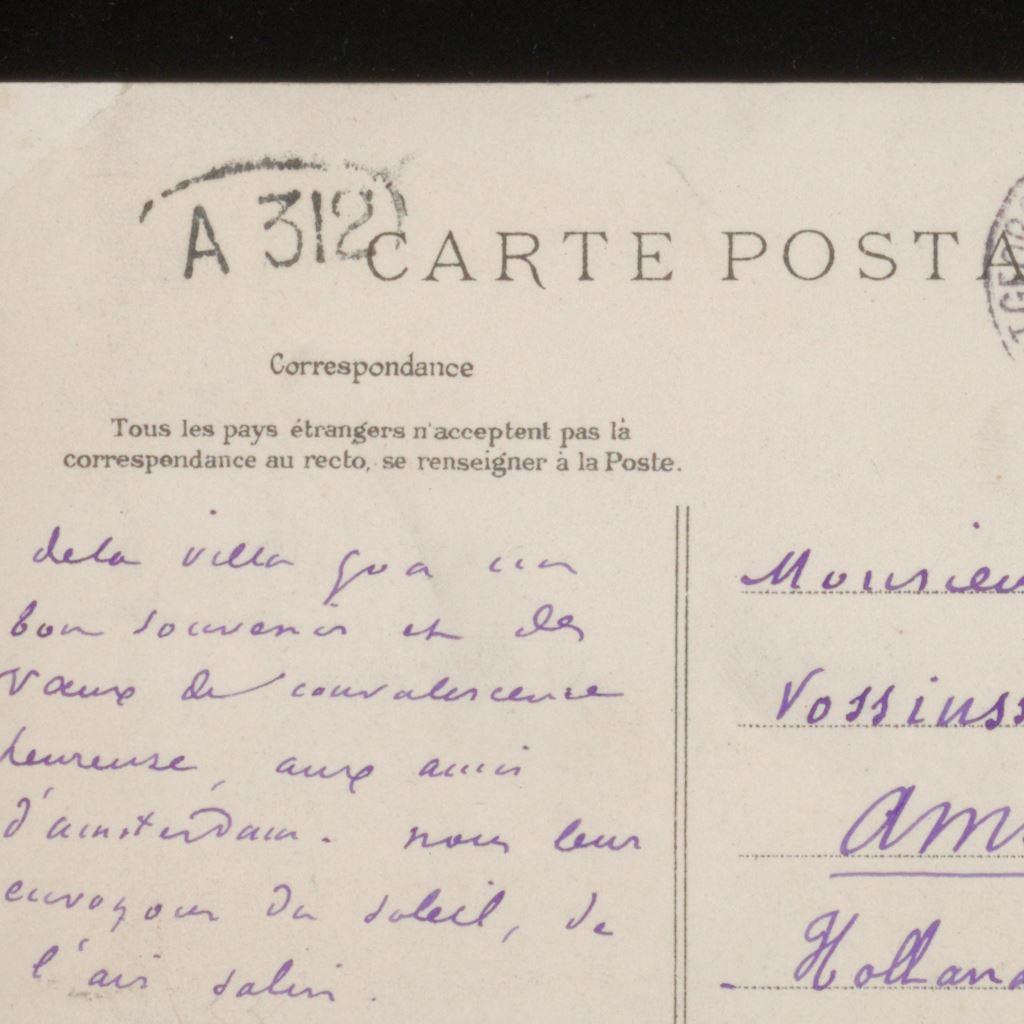 A 312
CARTE POSTA
Correspondance
Tous les pays étrangers n'acceptent pas là
correspondance au recto, se renseigner à la Poste.
de la villa Goa un
bon souvenir et des
vœux de convalescence
heureuse, aux amis
d'amsterdam. nous leur
envoyons du soleil, de
l'air salin.
Monsieu
Vossiuss
Ams
Holland